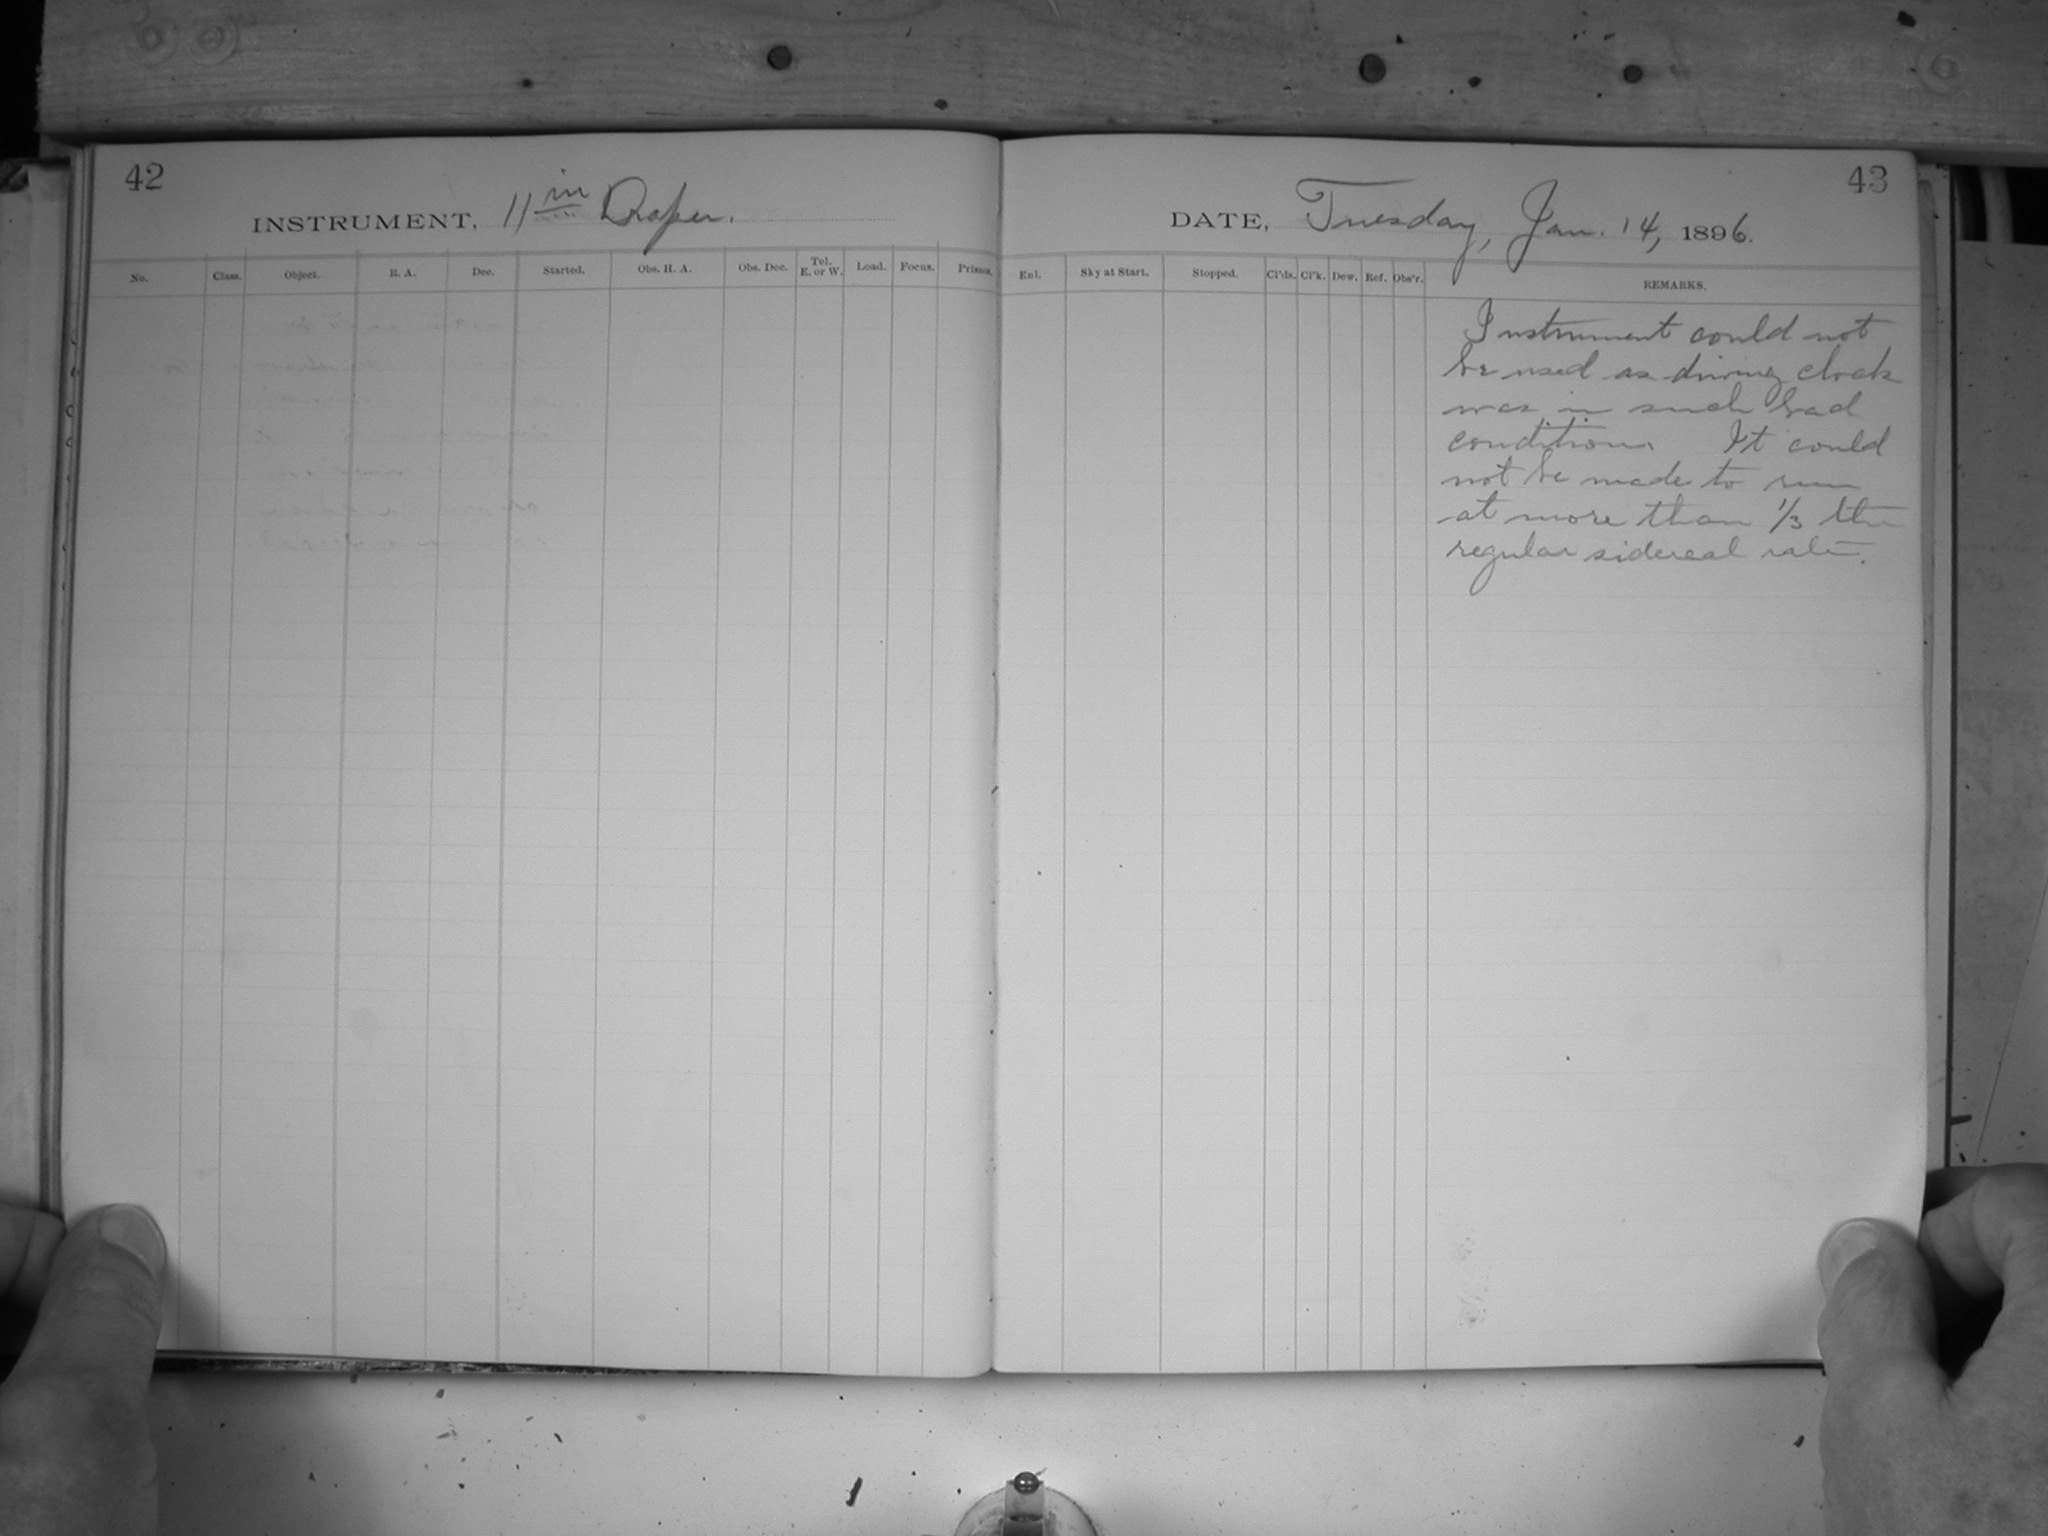 42
INSTRUMENT, 11 in Draper.
No. Class. Object. R. A. Dec. Started. Obs. H. A. Obs. Dec. Tel. E. or W. Load. Focus. Prisms.
43
DATE, Tuesday, Jan. 14, 1896.
Enl. Sky at Start. Stopped. Cl'ds. Cl'k. Dew. Ref. Obs'r. REMARKS.
Instrument could not
be used as driving clock
was in such bad
condition. It could
not be made to run
at more than 1/3 the
regular sidereal rate.